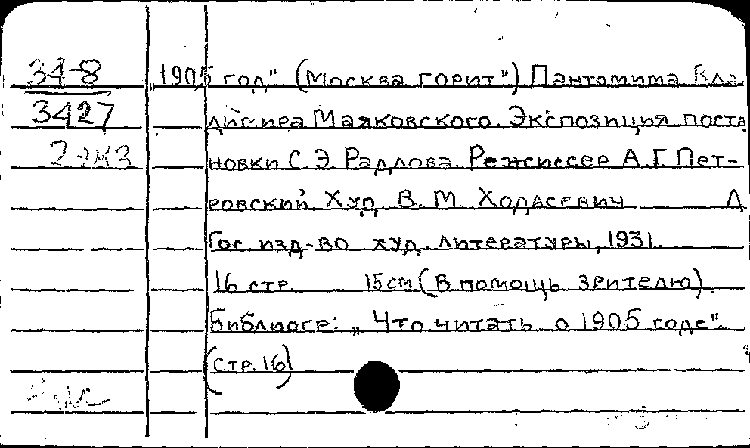 34-8 1905 год" (Москва горит") Пантомима Вла-
3427 димира Маяковского. Экспозиция поста
2 экз новки С. Э. Радлова. Режиссер А. Г. Пет-
ровский. Худ. В. М. Ходасевич Л
Гос. изд-во худ. литературы, 1931.
16 стр. 15 см (В помощь зрителю).
Библиогр: „Что читать о 1905 годе".
(стр. 16)